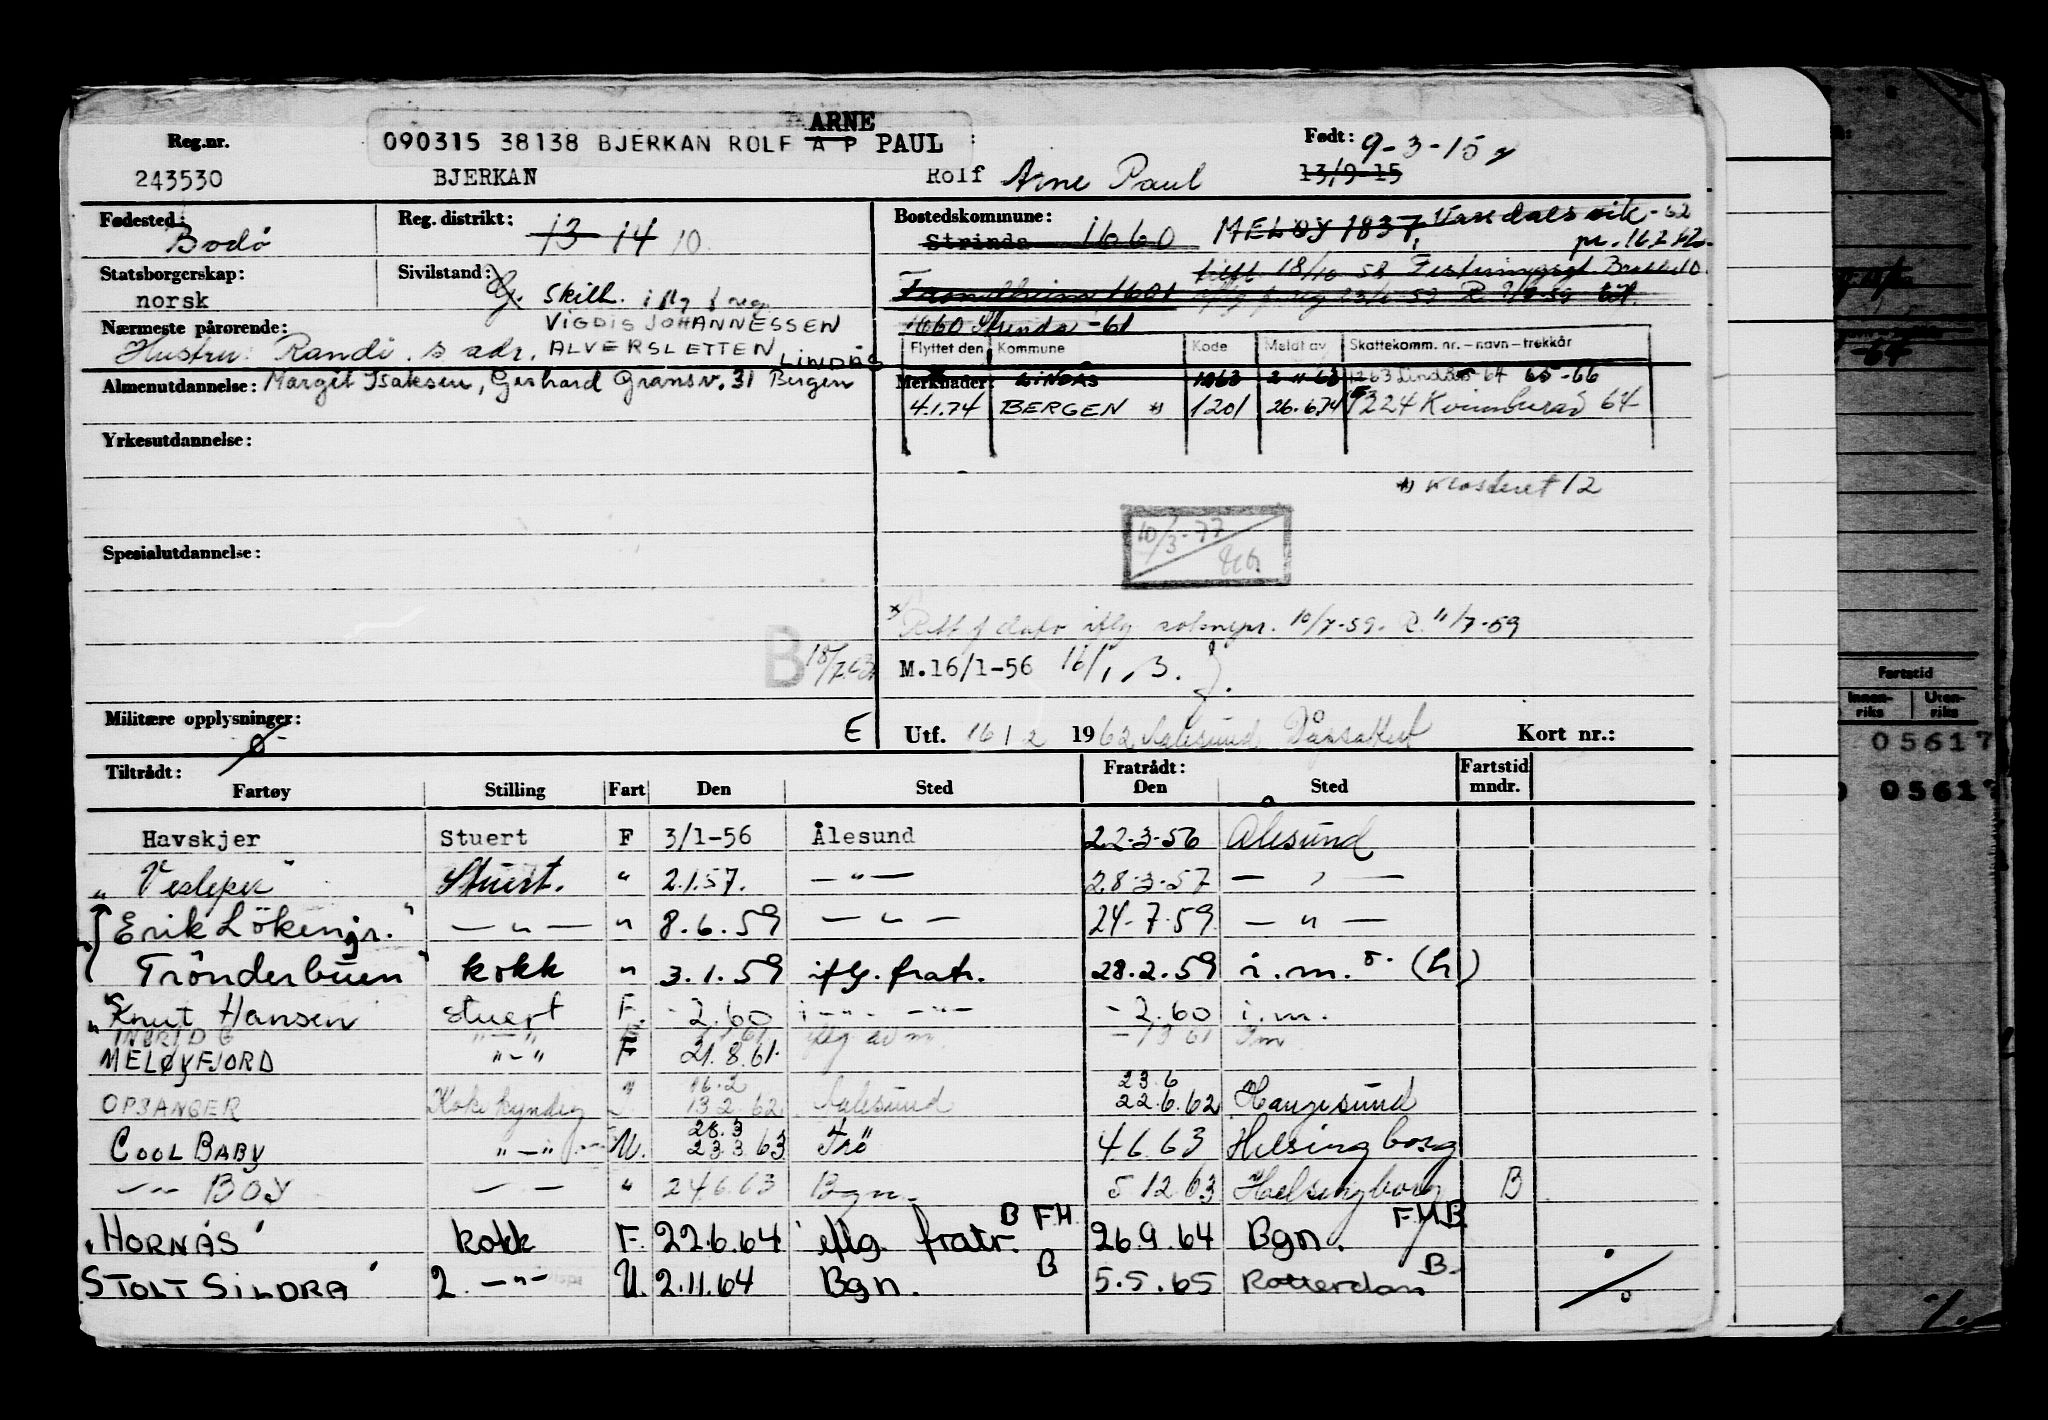 ARNE
Reg.nr. 090315 38138 BJERKAN ROLF A P PAUL Født: 9-3-15
243530 BJERKAN Rolf Arne Paul 13/9-15
Fødested: Bodö Reg. distrikt: 13 14 10 Bostedskommune: Strinda 1660 MELØY 1837, Vardalsvik -62
Statsborgerskap: norsk Sivilstand: G. Skilt. iflg f reg Trondheim 1601
1660 Strinda -61
Nærmeste pårørende: VIGDIS JOHANNESSEN
Hustru: Randi. s adr. ALVERSLETTEN LINDÅS
Flyttet den Kommune Kode Meldt av Skattekomm. nr.-navn-trekkår
Almenutdannelse: Margit Isaksen, Gerhard Gransv. 31 Bergen
Merknader: LINDÅS 1263 2 11 63 1263 Lindås 64 65-66
4.1.74 BERGEN *) 1201 26.6.74 1224 Kvinnherad 64
Yrkesutdannelse:
*) Klosteret 12
10/3-77
Spesialutdannelse:
10/7-59. R. 11/7-59
B 18/7.63 M.16/1-56 16/1,
Militære opplysninger: ø E Utf. 16/2 1962 Aalesund Kort nr.:
Tiltrådt: Fratrådt: Fartstid
Fartøy Stilling Fart Den Sted Den Sted mndr.
Havskjer Stuert F 3/1-56 Ålesund 22-3-56 Ålesund
"Vesleper" Stuert. " 2.1.57. —"— 28-3-57 — " —
"Erik Löken jr." —"— " 8.6.59 —"— 24-7-59 —"—
Trönderbuen" kokk " 3.1.59 iflg. fratr. 28.2.59 i.m. (h)
"Knut Hansen stuert F. -2.60 i -"- -"- -2.60 i.m.
INGRID G "-"
MELØYFJORD "-" F 21.8.61.
16.2 23.6
OPSANGER Kokk kyndig 13 2 62 Aalesund 22.6.62 Haugesund
28.3
COOL BABY "-" U. 23.3 63 4 6 63 Helsingborg
-"- BOY -"- " 24 6 63 Bgn. 5 12 63 Helsingborg B
"HORNÅS" kokk F. 22.6.64 iflg. fratr. B FH 26.9.64 Bgn. FHB
STOLT SILDRA" 2. -"- U. 2.11.64 Bgn. B 5.5.65 Rotterdam B. ./.
Fartstid
Innen-riks Uten-riks
05617
05617